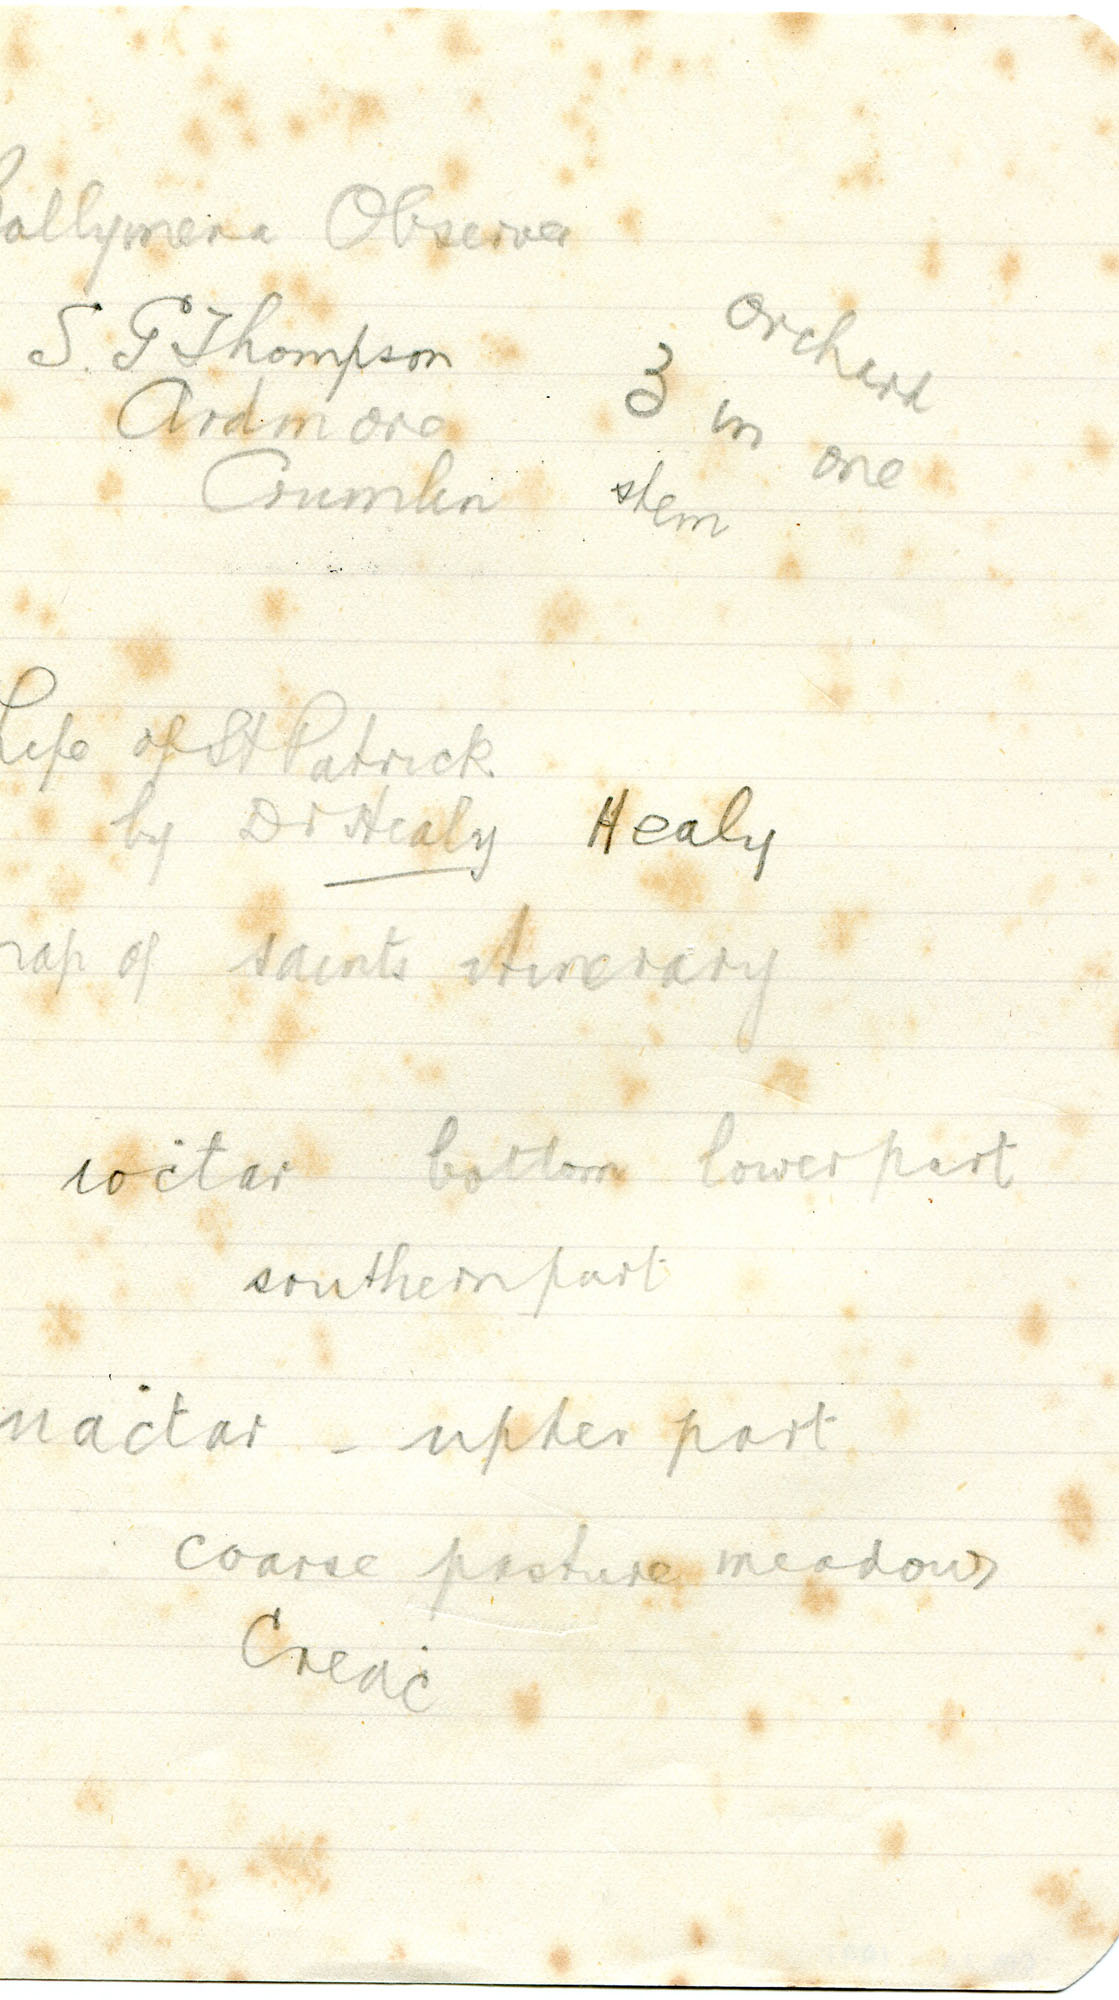 Ballymena Observer
S. G Thompson
Ardmore
Crumlin
orchard
3 in one
stem
Life of St Patrick
by Dr Healy Healy
map of saints itinerary
íoċtar bottom lower part
southern part
uaċtar - upper part
coarse pasture meadow
Creaċ